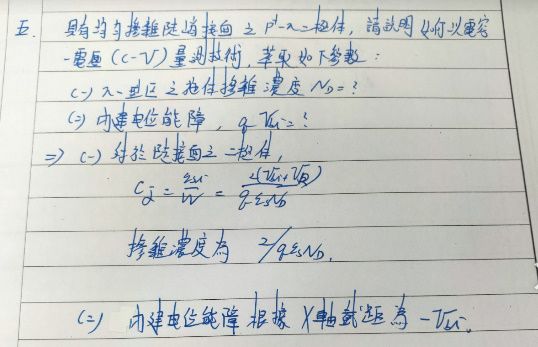 五. 具有均勻摻雜陡峭接面之 P⁺-n 二極体, 請說明如何以電容
-電壓 (C-V) 量測技術, 萃取如下參數:
(一) n-型區之施体摻雜濃度 N_D = ?
(二) 內建電位能障, q V_bi = ?
⇒ (一) 對於陡接面之二極体,
C_j = ε_si/W = 2(V_bi+V_R)/qε_sN_D
摻雜濃度為 2/qε_sN_D.
(二) 內建電位能障根據 X軸截距為 -V_bi.